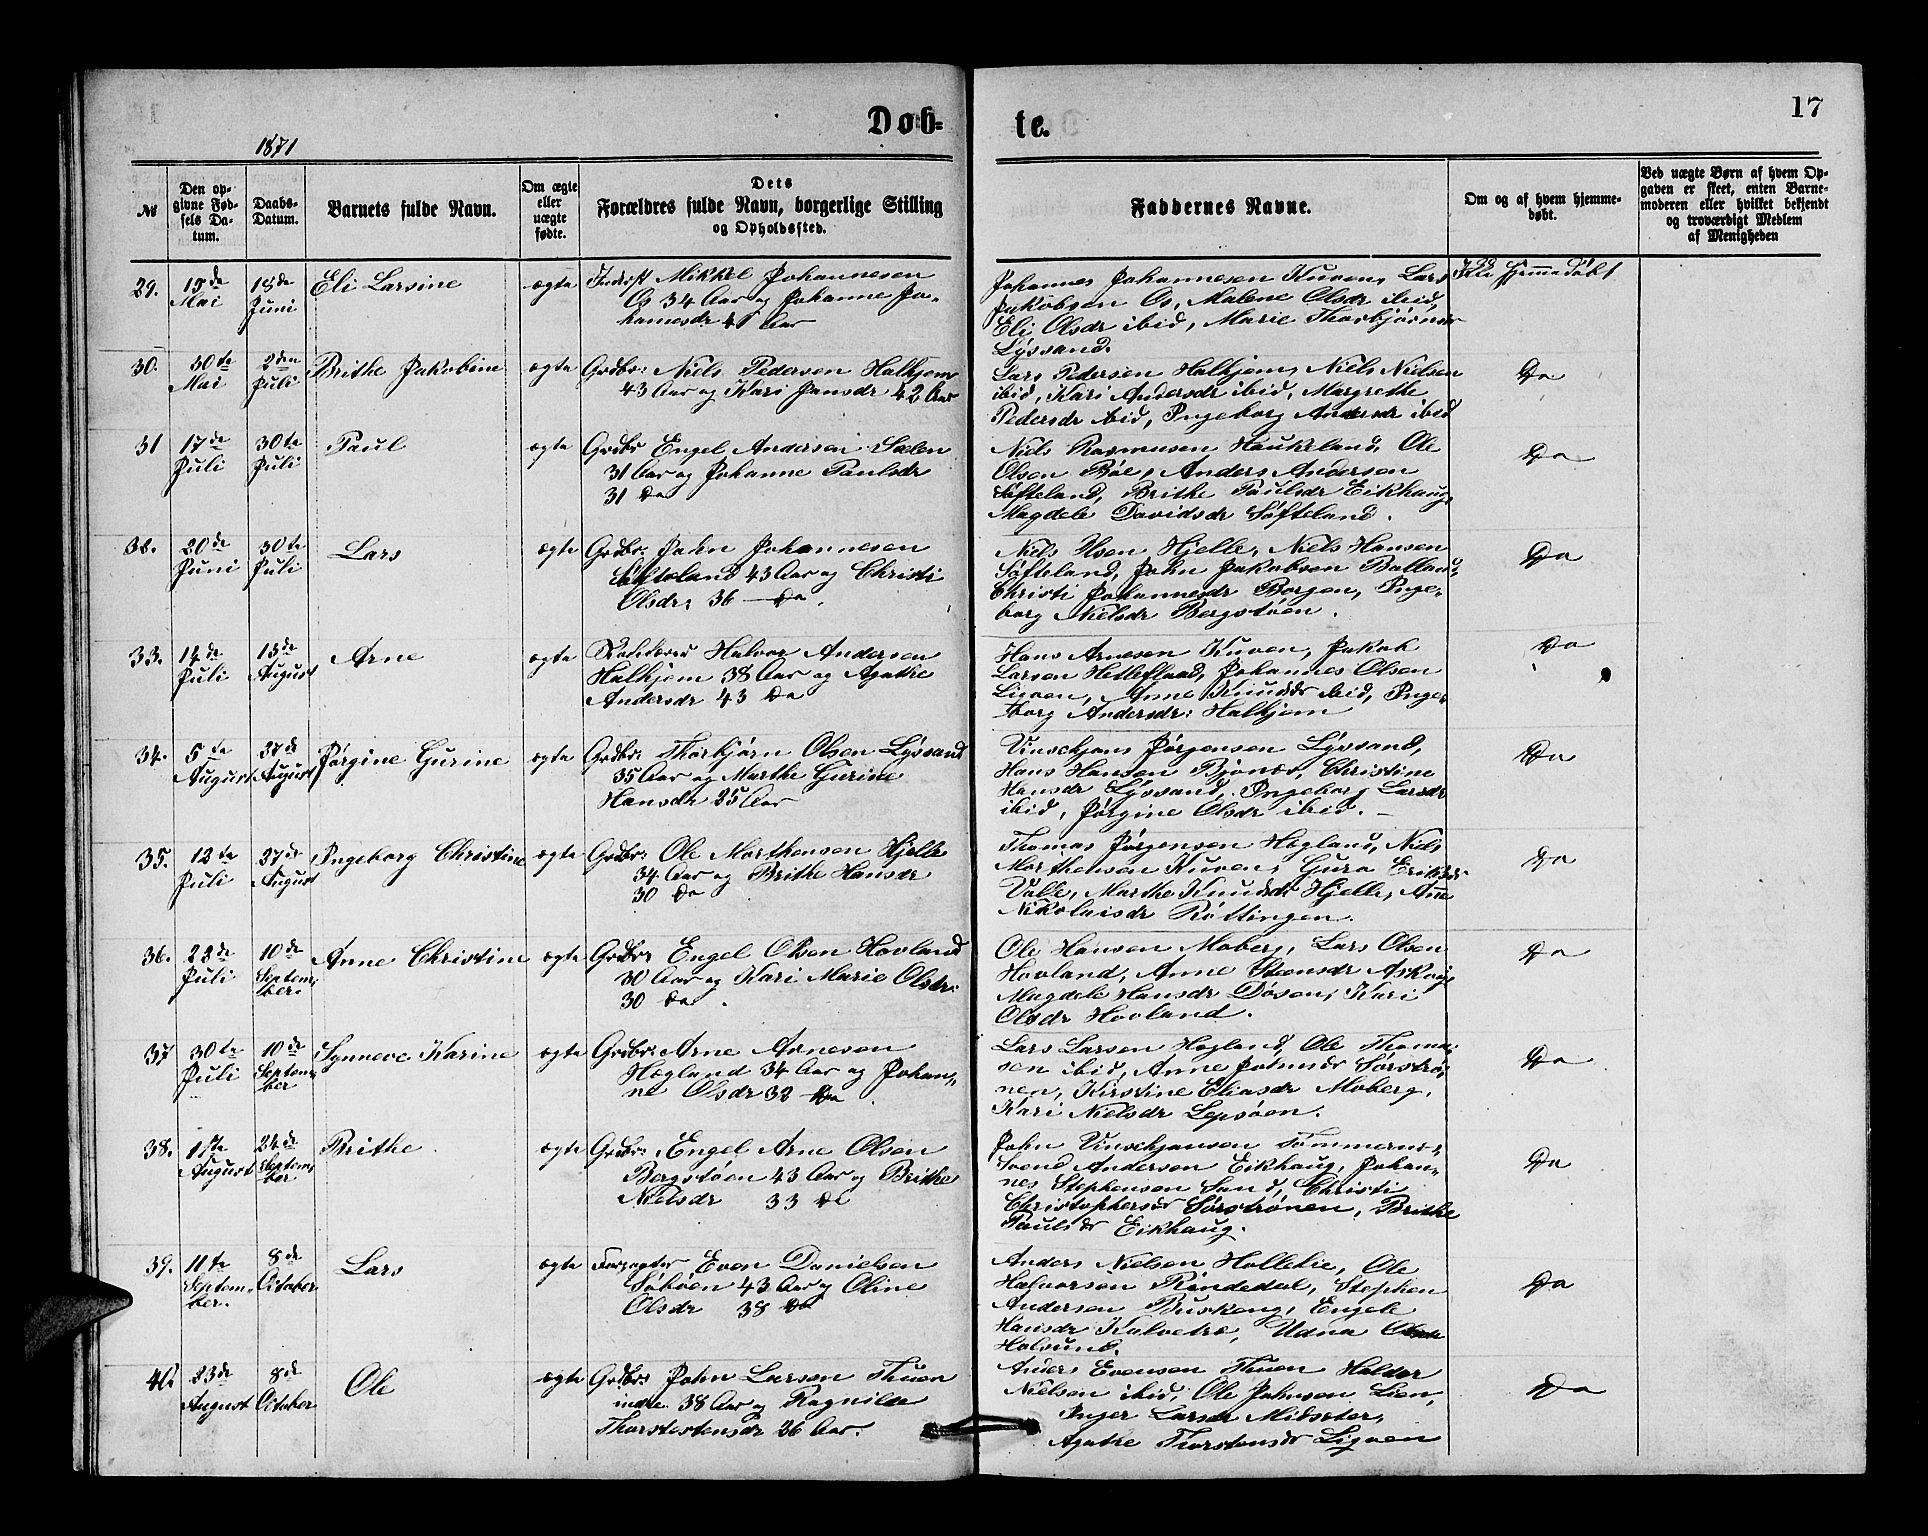 Døb-
te.
17
1871
№
Den op-
givne Fød-
sels Da-
tum.
Daabs-
Datum.
Barnets fulde Navn.
Om ægte
eller
uægte
fødte.
Dets
Forældres fulde Navn, borgerlige Stilling
og Opholdssted.
Faddernes Navne.
Om og af hvem hjemme-
døbt.
Ved uægte Børn af hvem Op-
gaven er skeet, enten Barne-
moderen eller hvilket bekjendt
og troværdigt Medlem
af Menigheden
29. 15de Mai 18de Juni Eli Larsine ægte
Inderst Mikkel Johannesen
Os 34 Aar og Johanne Jo-
hannesdr 41 Aar
Johannes Johannesen Kuven, Lars
Jakobsen Os, Malene Olsdr ibid,
Eli Olsdr ibid, Marie Thorbjørnsdr
Lyssand.
Ikke hjemmedøbt
30. 30te Mai 2den Juli Brithe Jakobine ægte
Grdbr: Niels Pedersen Halhjem
43 Aar og Kari Jansdr 42 Aar
Lars Pedersen Halhjem, Niels Nielsen
ibid, Kari Andersdr ibid, Margrethe
Pedersdr ibid, Ingeborg Andersdr ibid
Do
31 17de Juli 30te Juli Paul ægte
Grdbr Engel Andersen Salen
31 Aar og Johanne Paulsdr
31 Do
Niels Rasmusen Haukeland, Ole
Olsen Bøe, Anders Andersen
Søfteland, Brithe Paulsdr Eikhaug,
Magdele Davidsdr Søfteland.
Do
32. 20de Juni 30te Juli Lars ægte
Grdbr: John Johannesen
Søfteland 43 Aar og Christi
Olsdr: 36 Do.
Niels Olsen Hjelle, Niels Hansen
Søfteland, John Jakobsen Balland,
Christi Johannesdr Borgen, Inge-
borg Nielsdr Bergstøen.
Do
33. 14de Juli 13de August Arne ægte
Halvor Andersen
Halhjem 38 Aar og Agathe
Andersdr 43 Do
Hans Arnesen Kuven, Jakob
Larsen Hetleflaad, Johannes Olsen
Ligven, Anne Knudsdr ibid, Inge-
borg Andersdr: Halhjem
Do
34. 5te August 27de August Jørgine Gurine ægte
Grdbr: Thorbjørn Olsen Lyssand
35 Aar og Marthe Gurine
Hansdr 25 Aar
Vinschjans Jørgensen Lyssand,
Hans Hansen Bjønes, Christine
Hansdr Lyssand, Ingeborg Larsdr
ibid, Jørgine Olsdr ibid.
Do
35. 12te Juli 27de August Ingeborg Christine ægte
Grdbr: Ole Morthensen Hjelle
34 Aar og Brithe Hansdr
30 Do
Thomas Jørgensen Hægland, Niels
Morthensen Kuven, Guro Eriksdr
Valle, Marthe Knudsdr Hjelle, Anne
Nikolaisdr Røttingen.
Do
36. 23de Juli 10de September: Anne Christine ægte
Grdbr: Engel Olsen Hovland
30 Aar og Kari Marie Olsdr:
30 Do.
Ole Hansen Moberg, Lars Olsen
Hovland, Anne Steensdr Askvig
Magdele Hansdr Døsen, Kari
Olsdr Hovland.
Do
37 30te Juli 10de September Synneve Karine ægte
Grdbr: Arne Arnesen
Hægland 34 Aar og Johan-
ne Olsdr 32 Do.
Lars Larsen Hægland, Ole Thoma-
sen ibid, Anne Johnsdr Sørstrø-
nen, Kirstine Eliasdr Moberg,
Kari Nielsdr Lepsøen.
Do
38. 1ste August 24de September Brithe ægte
Grdbr:, Engel Arne Olsen
Bergstøen 43 Aar og Brithe
Nielsdr 33 Do
John Vinschjansen Tømmernes
Svend Andersen Eikhaug, Johan-
nes Stephensen Sand, Christi
Christophersdr Sørstrønen, Brithe
Paulsdr Eikhaug.
Do
39. 11te September. 8de October Lars ægte
Forpagter Even Danielsen
Søbøen 43 Aar og Oline
Olsdr 38 Do
Anders Nielsen Hollekie, Ole
Halvorsen Rindedal, Stephen
Andersen Buskeng, Engele
Hansdr Kalvetræ, Udna Olsdr
Holsund.
Do
40. 23de August 8de October Ole ægte
Grdbr: John Larsen Thuen
indre 38 Aar og Ragnilde
Thorstestensdr 36 Aar.
Anders Evensen Thuen Haldor
Nielsen ibid, Ole Johnsen Lien,
Inger Larsdr Midsæter,
Agathe Thorstensdr Ligven
Do